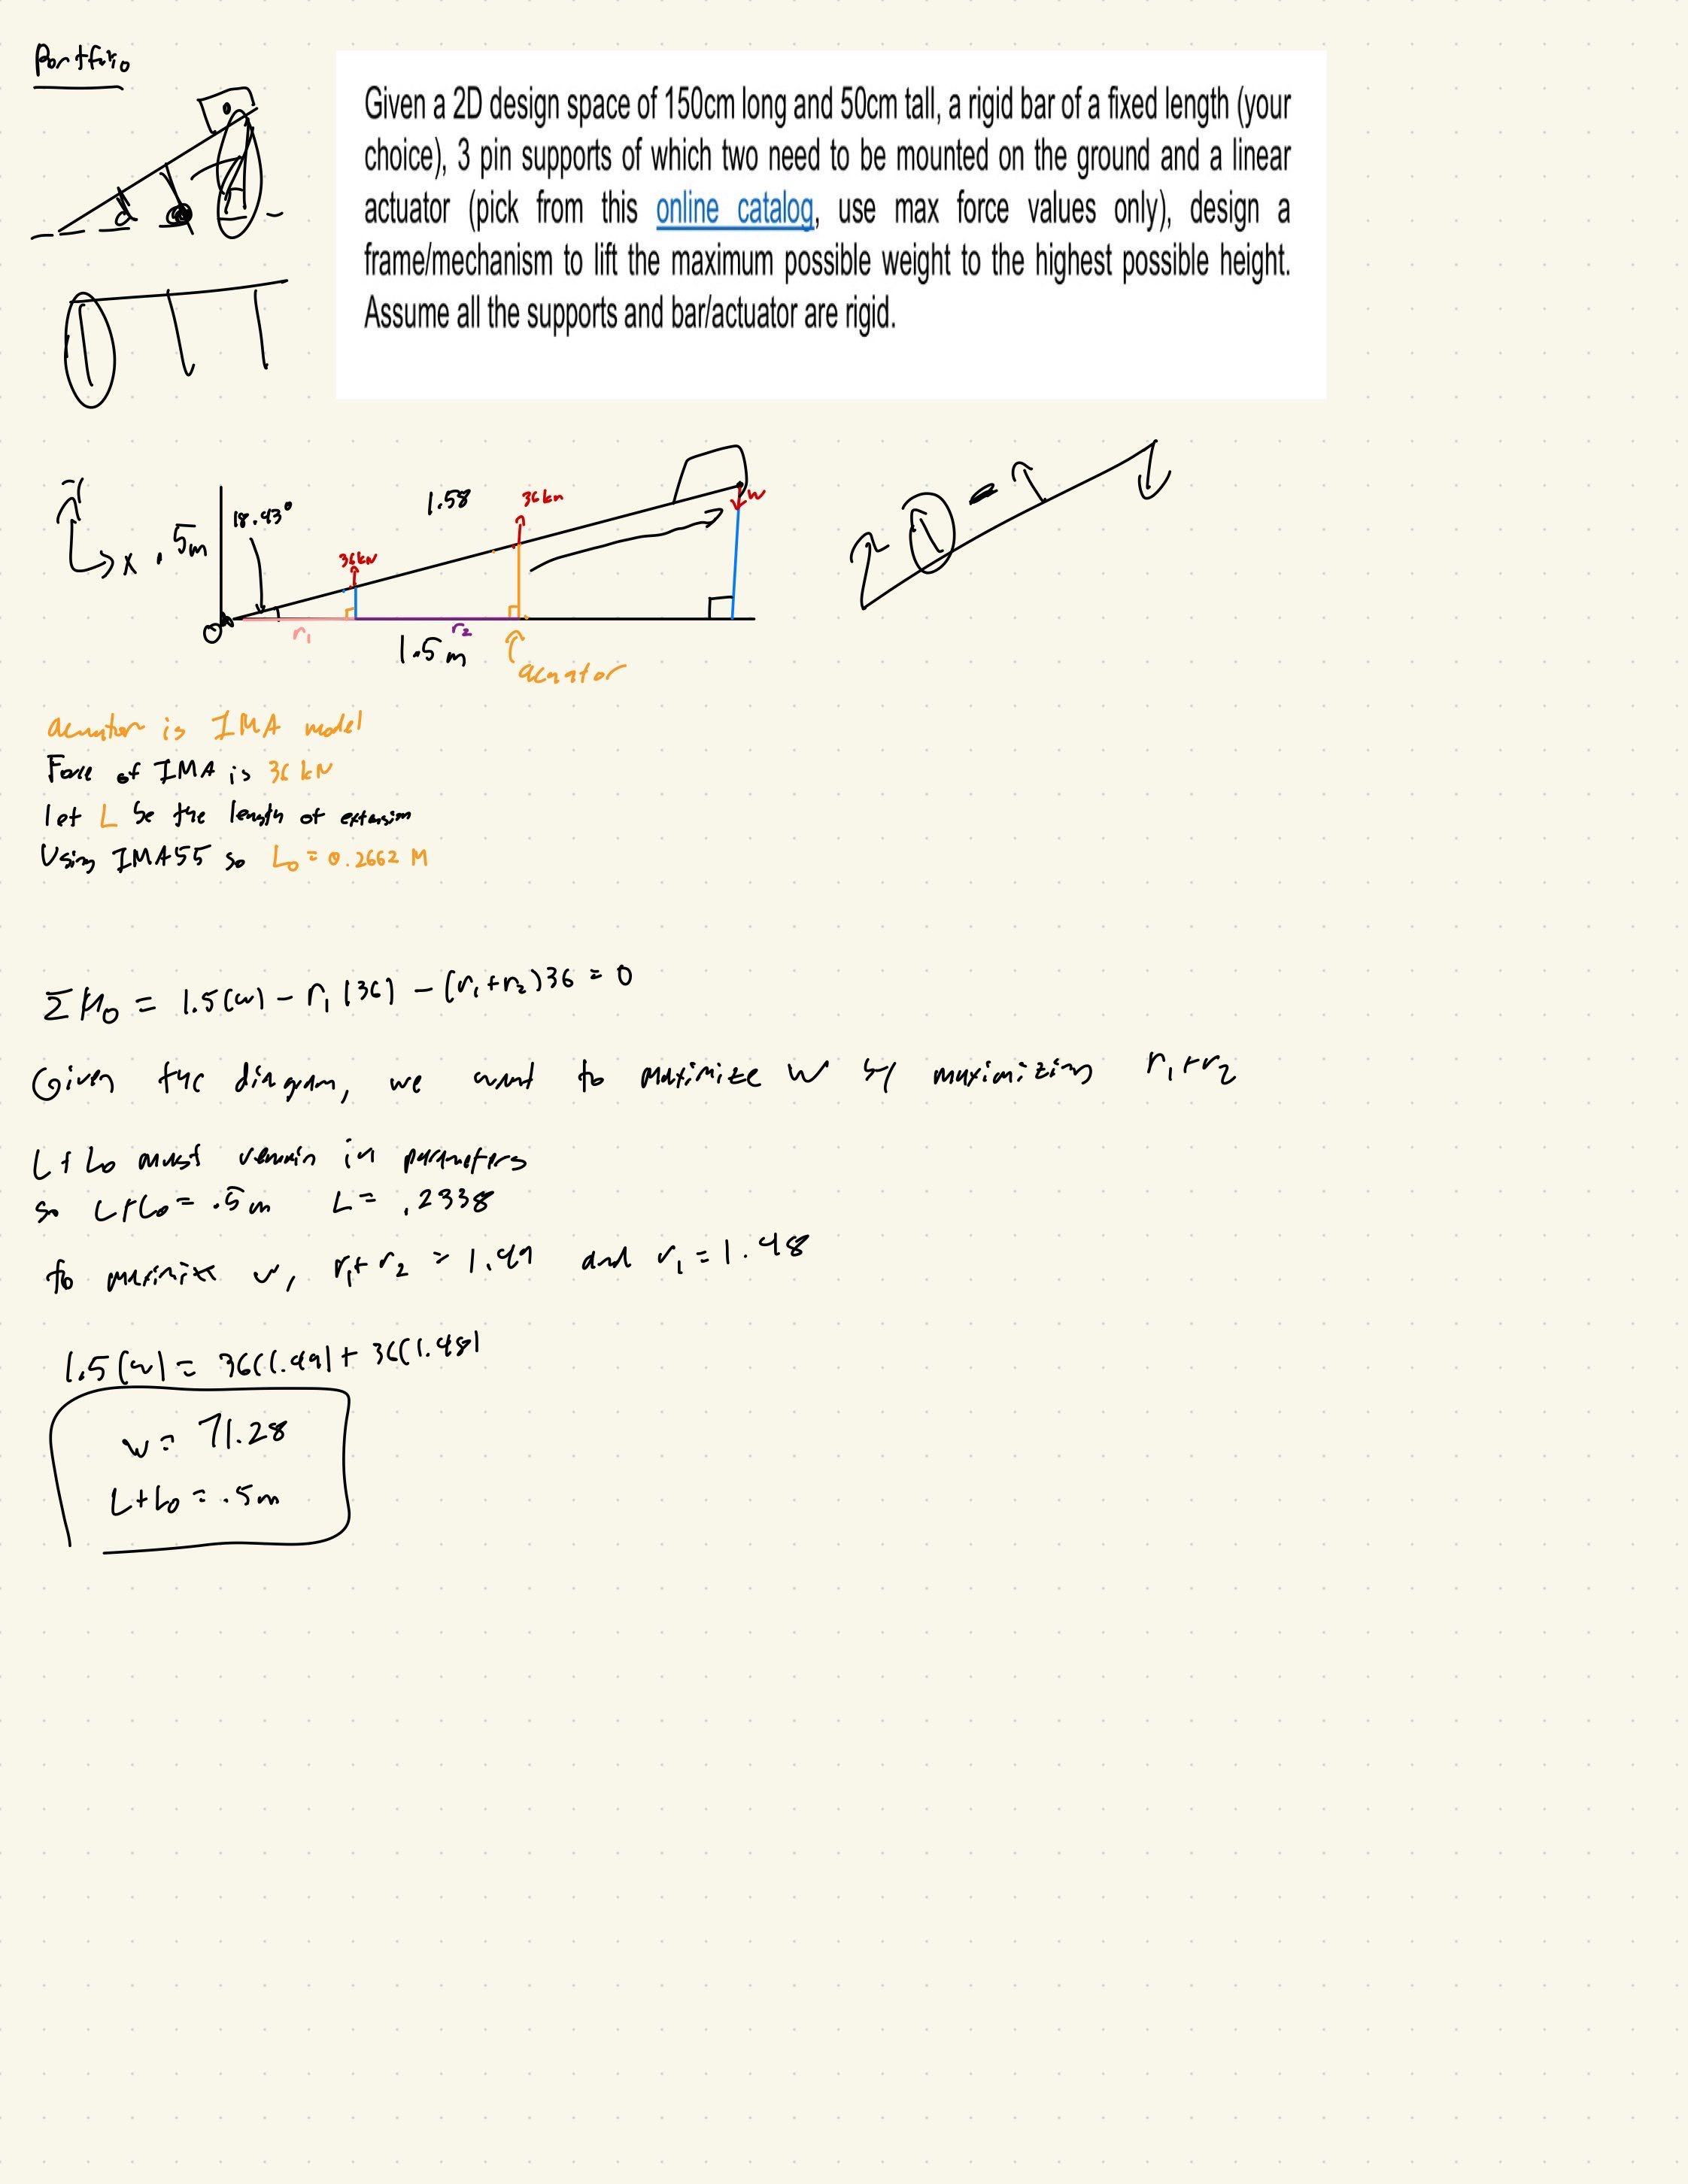 Portfolio
Given a 2D design space of 150cm long and 50cm tall, a rigid bar of a fixed length (your
choice), 3 pin supports of which two need to be mounted on the ground and a linear
actuator (pick from this online catalog, use max force values only), design a
frame/mechanism to lift the maximum possible weight to the highest possible height.
Assume all the supports and bar/actuator are rigid.
18.43°
1.58
36kn
W
x
.5m
36kN
O
r₁
r₂
1.5m
acuator
acuator is IMA model
Force of IMA is 36 kN
let L be the length of extension
Using IMA55 so L₀ = 0.2662 M
ΣM₀ = 1.5(w) - r₁(36) - (r₁+r₂)36 = 0
Given the diagram, we want to maximize W by maximizing r₁+r₂
L+L₀ must remain in parameters
so L+L₀ = .5m L = .2338
to maximize w, r₁+r₂ = 1.49 and r₁ = 1.48
1.5(w) = 36(1.49) + 36(1.48)
w = 71.28
L+L₀ = .5m